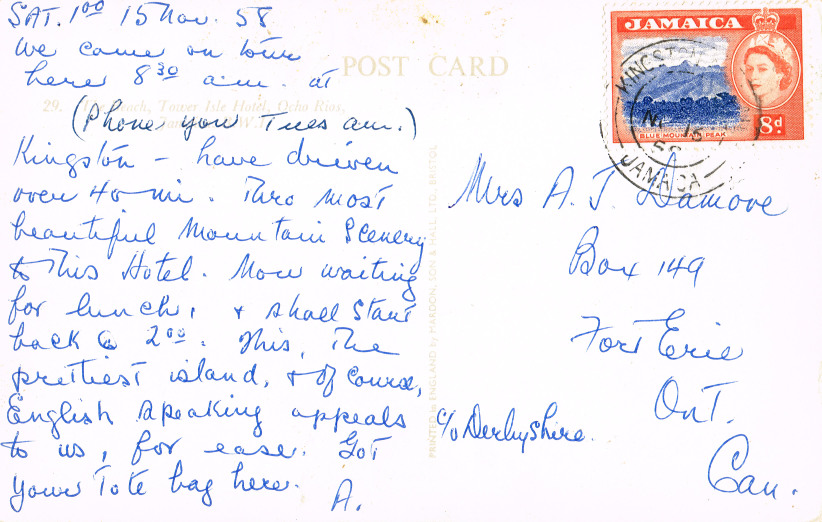 SAT. 1⁰⁰ 15 Nov. 58
We came on tour
here 8³⁰ a.m. at
(Phone you Tues am.)
Kingston – have driven
over 40 mi. Thro most
beautiful Mountain Scenery
to This Hotel. Now waiting
for lunch, & shall start
back @ 2⁰⁰. This, The
prettiest island, & of course,
English speaking appeals
to us, for ease. Got
your Tote bag here.
A.
POST CARD
29. The Beach, Tower Isle Hotel, Ocho Rios,
PRINTED in ENGLAND by MARDON, SON & HALL, LTD., BRISTOL
JAMAICA
BLUE MOUNTAIN PEAK
8d
KINGSTON
NO 15
58
JAMAICA
Mrs A. J. Damove
Box 149
Fort Erie
Ont.
c/o Derbyshire.
Can.